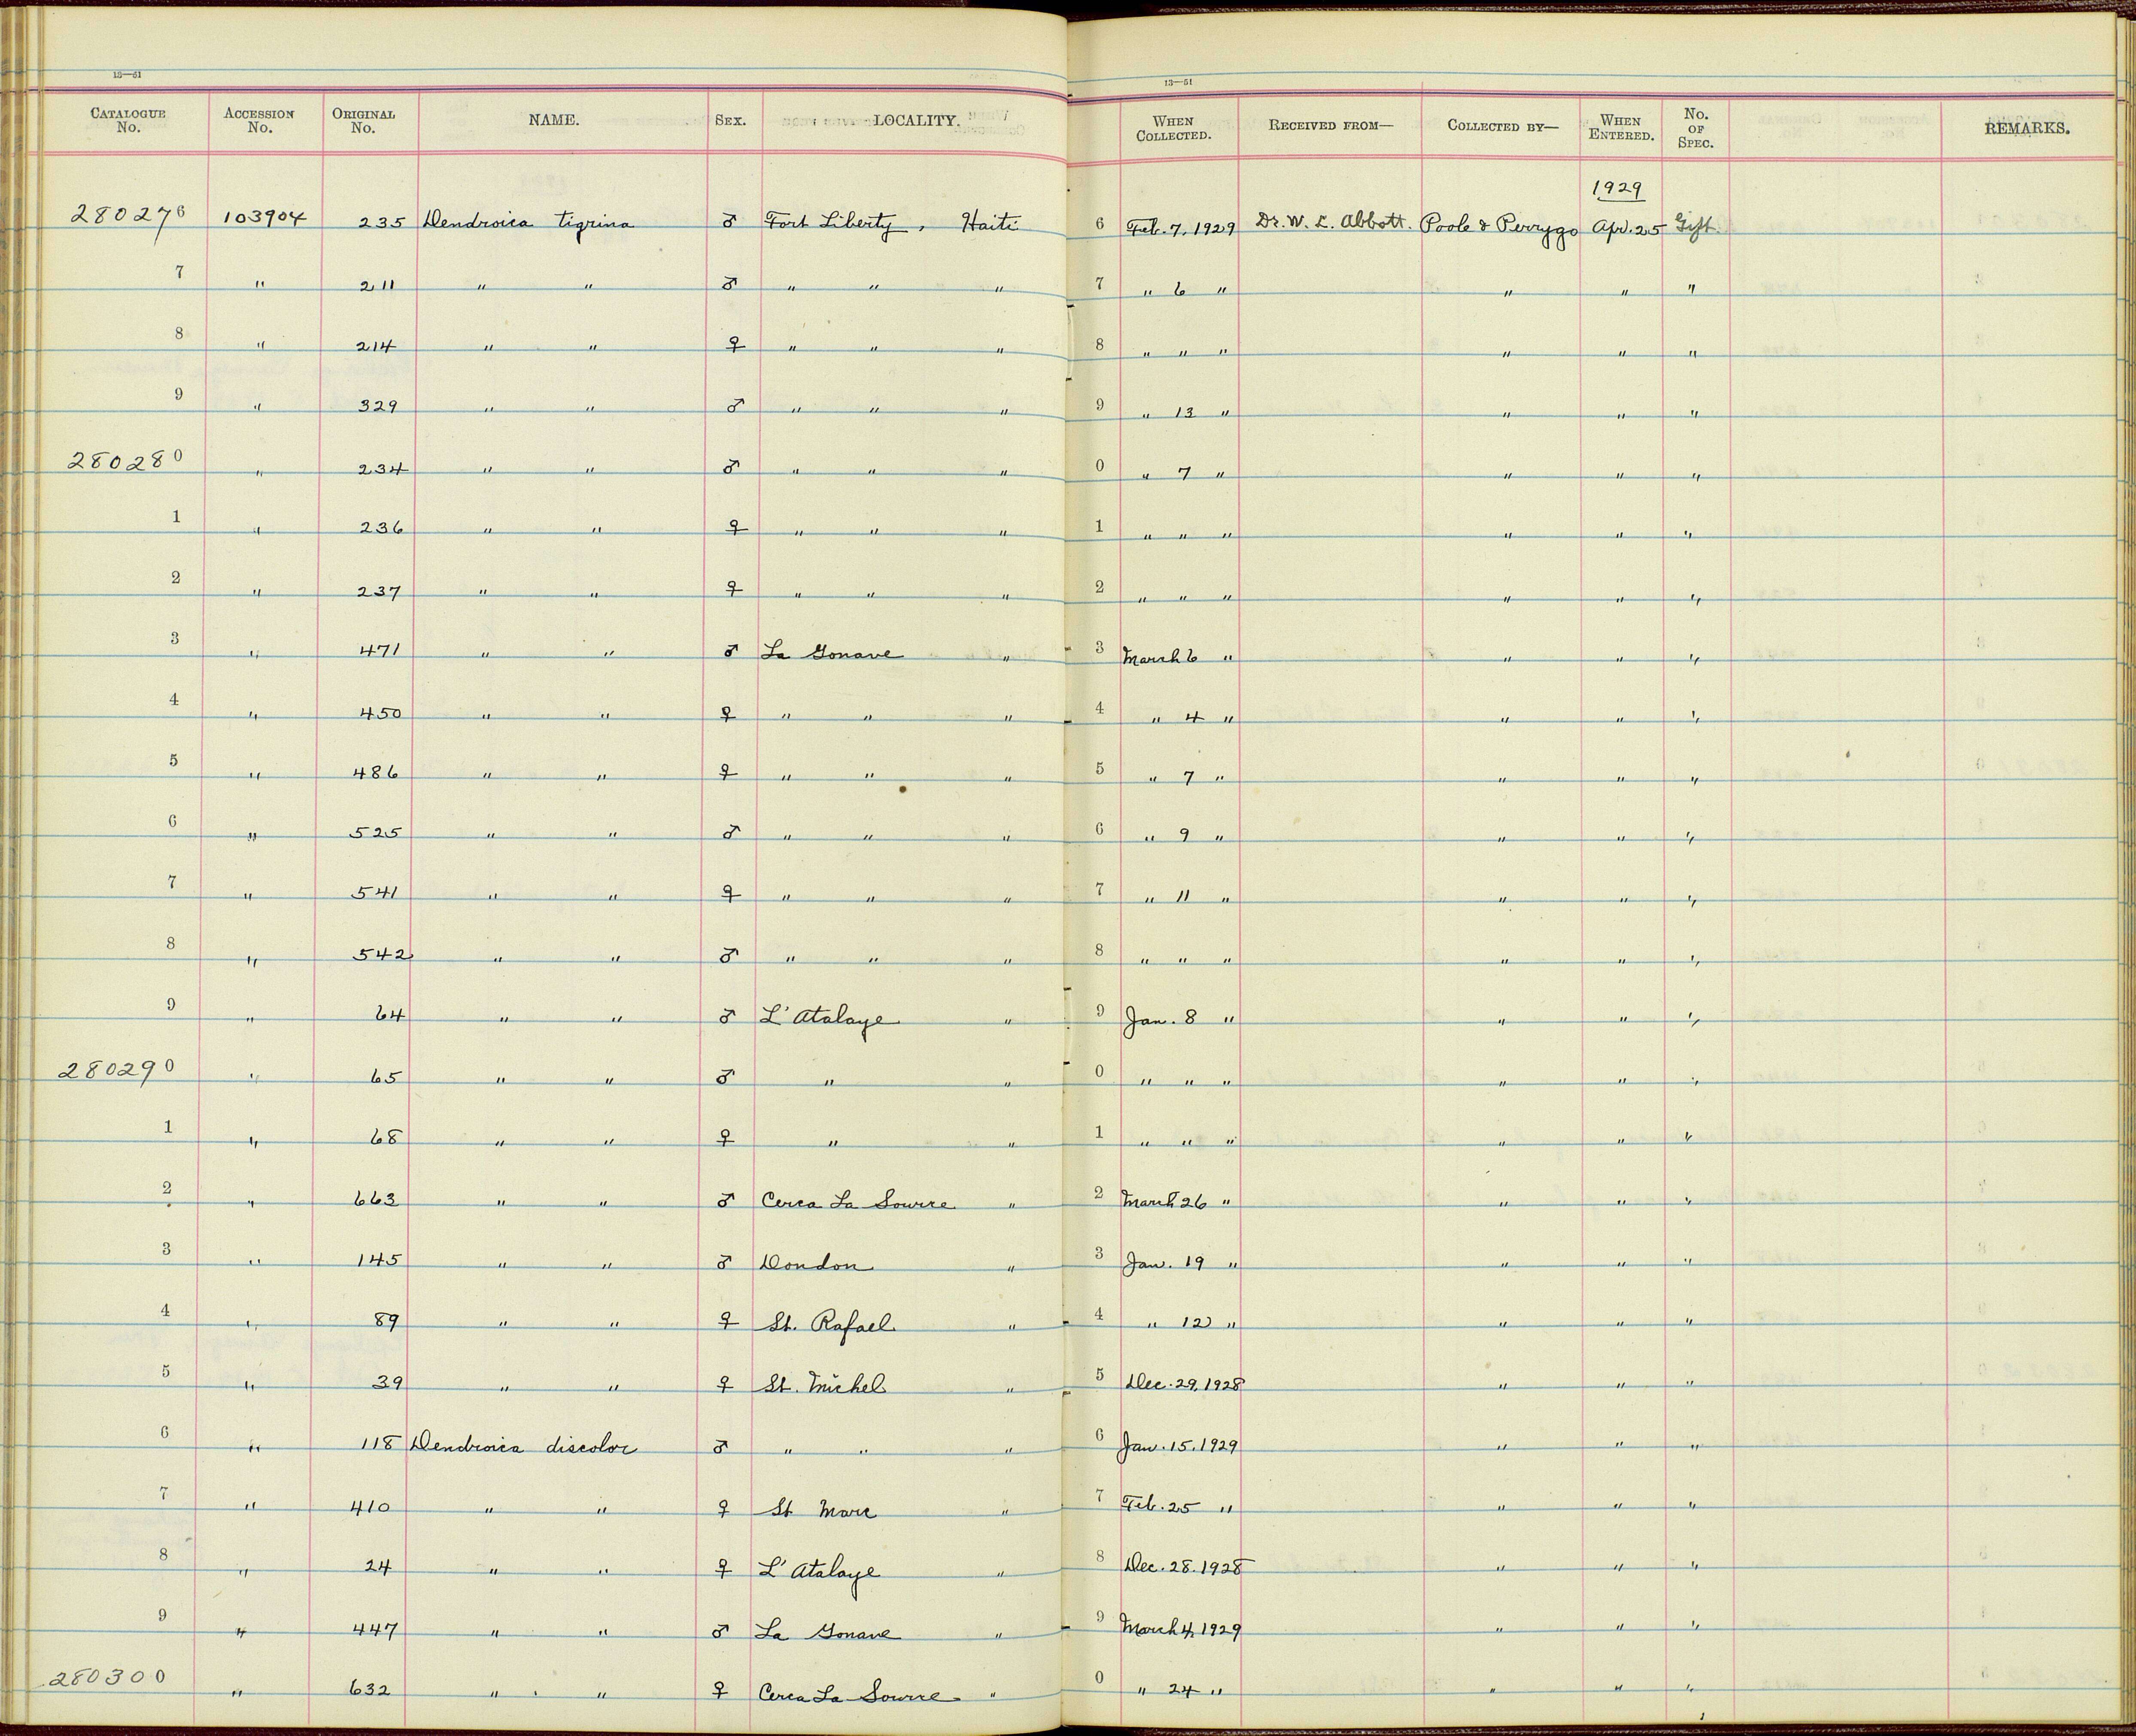 13—51
13—51
CATALOGUE No. ACCESSION No. ORIGINAL No. NAME. SEX. LOCALITY. WHEN COLLECTED. RECEIVED FROM— COLLECTED BY— WHEN ENTERED. No. OF SPEC. REMARKS.
1929
280276 103904 235 Dendroica tigrina ♂ Fort Liberty, Haiti 6 Feb. 7, 1929 Dr. W. L. Abbott. Poole & Perrygo Apr. 25 Gift.
7 " 211 " " ♂ " " " 7 " 6 " " " "
8 " 214 " " ♀ " " " 8 " " " " " "
9 " 329 " " ♂ " " " 9 " 13 " " " "
280280 " 234 " " ♂ " " " 0 " 7 " " " "
1 " 236 " " ♀ " " " 1 " " " " " "
2 " 237 " " ♀ " " " 2 " " " " " "
3 " 471 " " ♂ La Gonave " 3 March 6 " " " "
4 " 450 " " ♀ " " " 4 " 4 " " " "
5 " 486 " " ♀ " " " 5 " 7 " " " "
6 " 525 " " ♂ " " " 6 " 9 " " " "
7 " 541 " " ♀ " " " 7 " 11 " " " "
8 " 542 " " ♂ " " " 8 " " " " " "
9 " 64 " " ♂ L'Atalaye " 9 Jan. 8 " " " "
280290 " 65 " " ♂ " " 0 " " " " " "
1 " 68 " " ♀ " " 1 " " " " " "
2 " 663 " " ♂ Cerca La Source " 2 March 26 " " " "
3 " 145 " " ♂ Dondon " 3 Jan. 19 " " " "
4 " 89 " " ♀ St. Rafael " 4 " 12 " " " "
5 " 39 " " ♀ St. Michel " 5 Dec. 29, 1928 " " "
6 " 118 Dendroica discolor ♂ " " " 6 Jan. 15, 1929 " " "
7 " 410 " " ♀ St Marc " 7 Feb. 25 " " " "
8 " 24 " " ♀ L'Atalaye " 8 Dec. 28. 1928 " " "
9 " 447 " " ♂ La Gonave " 9 March 4, 1929 " " "
280300 " 632 " " ♀ Cerca La Source " 0 " 24 " " " "